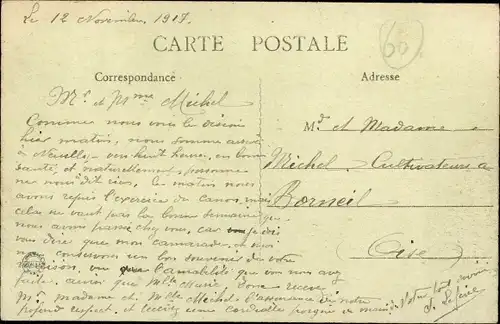 Le 12 Novembre 1917.
CARTE POSTALE
60
Correspondance
Adresse
Mr et Mme Michel
Comme nous vous le
hier matin, nous somme
à Neuilly - en bon
santé, et naturellement personne
ne nous dit rien, le matin nous
avons repris l'exercice du canon, mais
cela ne vaut pas la bonne semaine que
nous avons passé chez vous, car je dois
vous dire que mon camarade et moi
nous conservons un bon souvenir de votre
maison, vu que l'amabilité que vous nous avez
faite, ainsi que Mlle Marie, Donc recevez
Mr, madame et Mlle Michel l'assurance de notre
profond respect, et cordialle poigne de main
Mr et Madame
Michel Cultivateurs à
Borneil
Oise
Votre tout